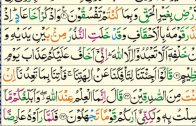 رْضِ بِغَيْرِ الْحَقِّ وَبِمَا كُنْتُمْ تَفْسُقُونَ ۝ وَاذْكُرْ أَخَا عَادٍ إِذْ
قَوْمَهُ بِالْأَحْقَافِ وَقَدْ خَلَتِ النُّذُرُ مِنْ بَيْنِ يَدَيْهِ وَ
خَلْفِهِ أَلَّا تَعْبُدُوا إِلَّا اللَّهَ إِنِّي أَخَافُ عَلَيْكُمْ عَذَابَ يَوْمٍ
۝ قَالُوا أَجِئْتَنَا لِتَأْفِكَنَا عَنْ آلِهَتِنَا فَأْتِنَا بِمَا تَعِدُنَا
مِنَ الصَّدِقِينَ ۝ قَالَ إِنَّمَا الْعِلْمُ عِنْدَ اللَّهِ وَأُبَلِّغُكُمْ مَا